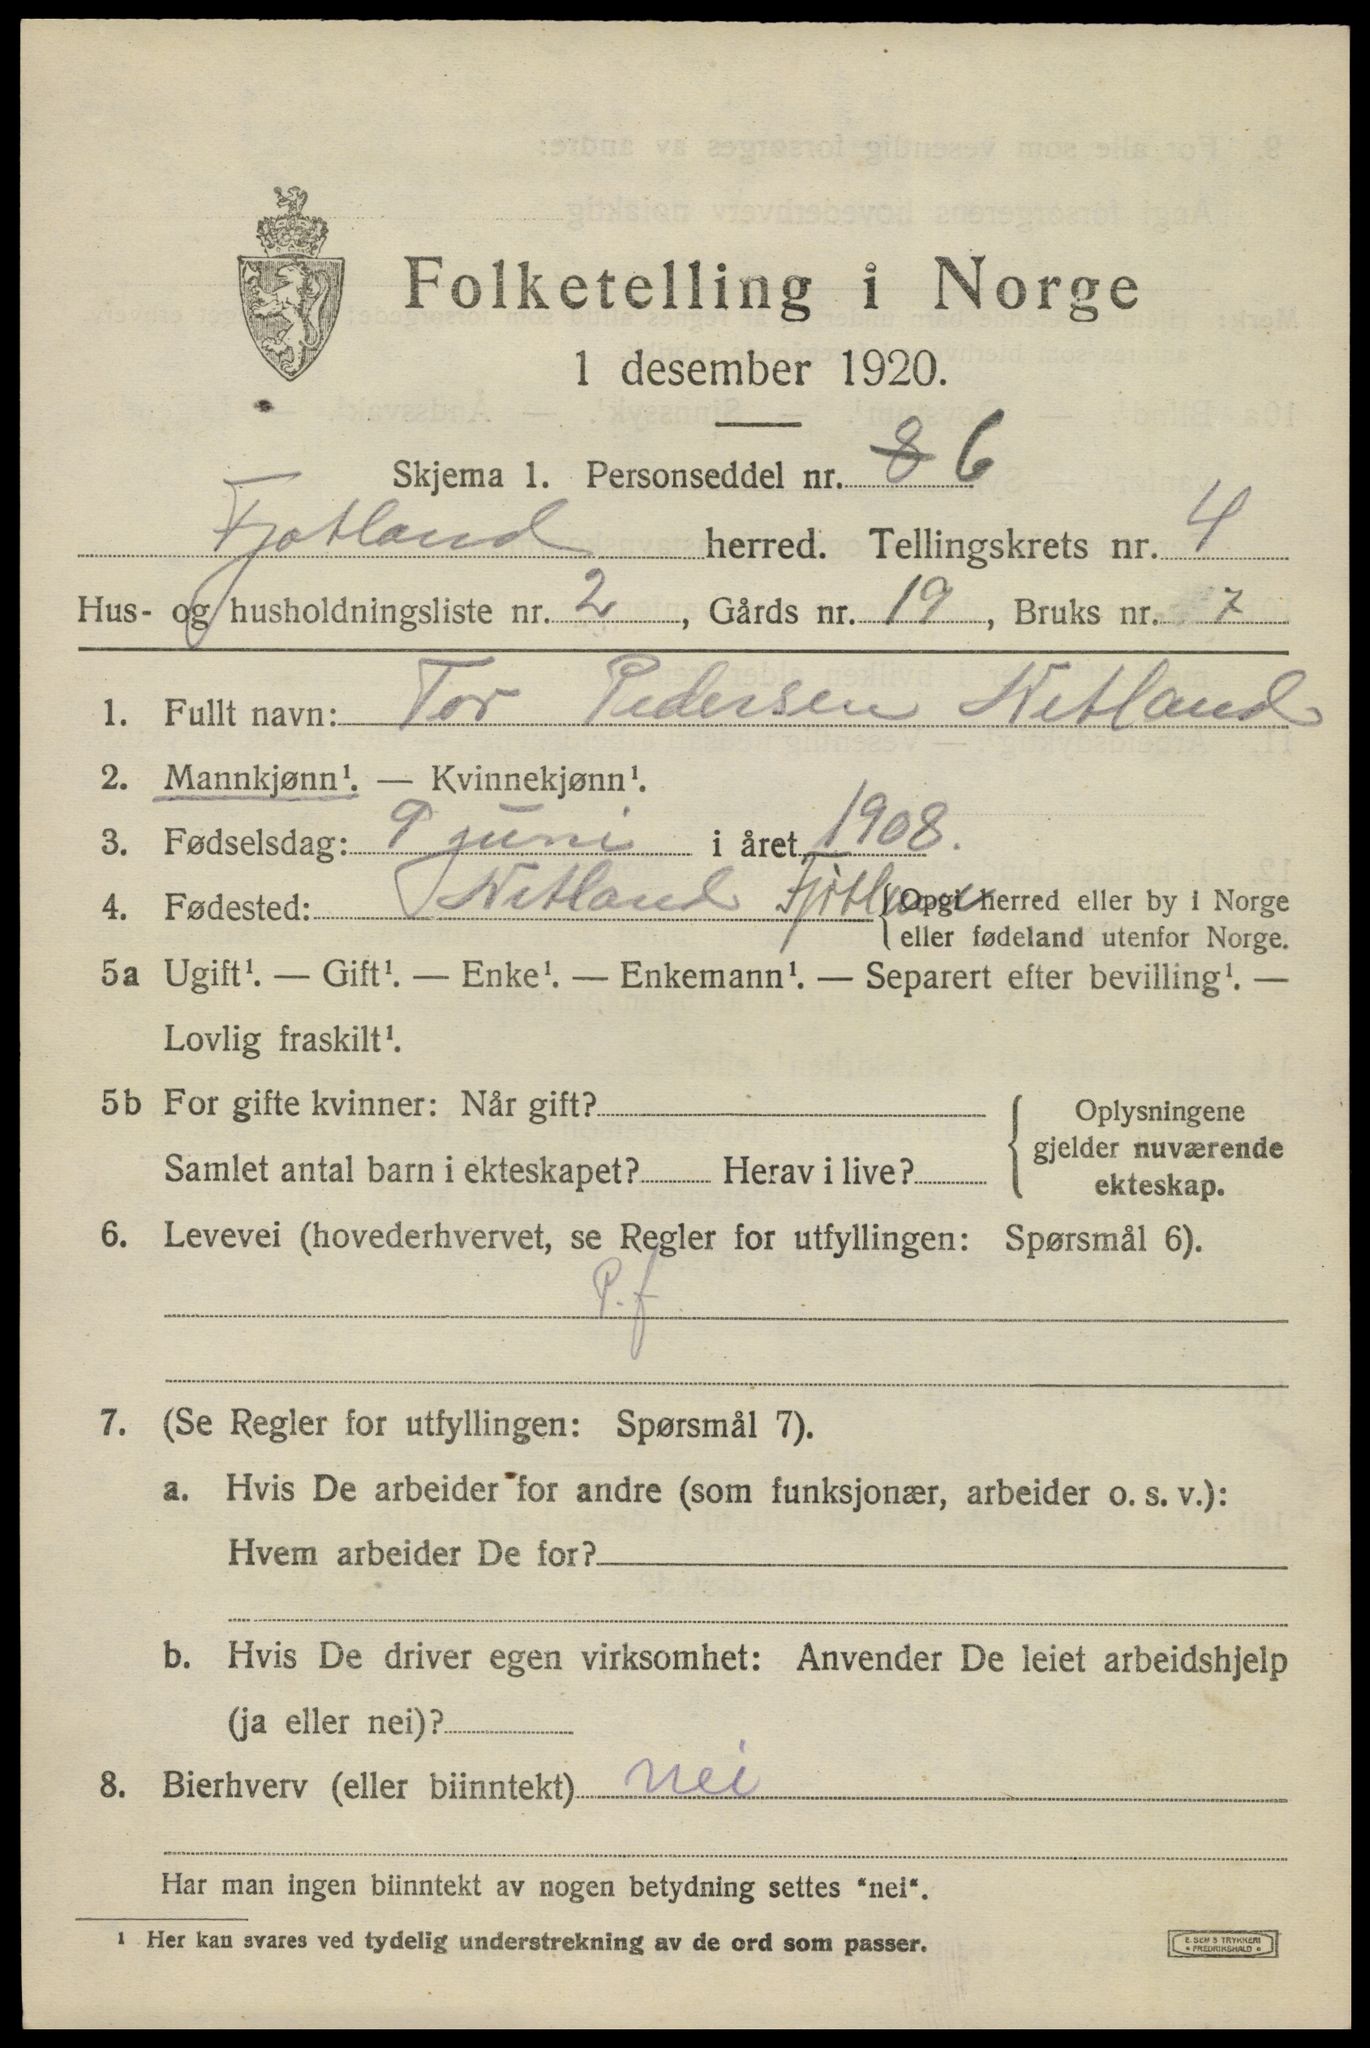 Folketelling i Norge
1 desember 1920.
Skjema 1. Personseddel nr. 8 6
Fjotland herred. Tellingskrets nr. 4
Hus- og husholdningsliste nr. 2, Gårds nr. 19, Bruks nr. 7
1. Fullt navn: Tor Pedersen Netland
2. Mannkjønn¹. — Kvinnekjønn¹.
3. Fødselsdag: 9 juni i året 1908.
4. Fødested: Netland Fjotland {Opgi herred eller by i Norge
eller fødeland utenfor Norge.
5a Ugift¹. — Gift¹. — Enke¹. — Enkemann¹. — Separert efter bevilling¹. —
Lovlig fraskilt¹.
5b For gifte kvinner: Når gift?
Samlet antal barn i ekteskapet? Herav i live?
Oplysningene
gjelder nuværende
ekteskap.
6. Levevei (hovederhvervet, se Regler for utfyllingen: Spørsmål 6).
P.f
7. (Se Regler for utfyllingen: Spørsmål 7).
a. Hvis De arbeider for andre (som funksjonær, arbeider o. s. v.):
Hvem arbeider De for?
b. Hvis De driver egen virksomhet: Anvender De leiet arbeidshjelp
(ja eller nei)?
8. Bierhverv (eller biinntekt) nei
Har man ingen biinntekt av nogen betydning settes "nei".
¹ Her kan svares ved tydelig understrekning av de ord som passer.
E. SEM'S TRYKKERI
• FREDRIKSHALD •